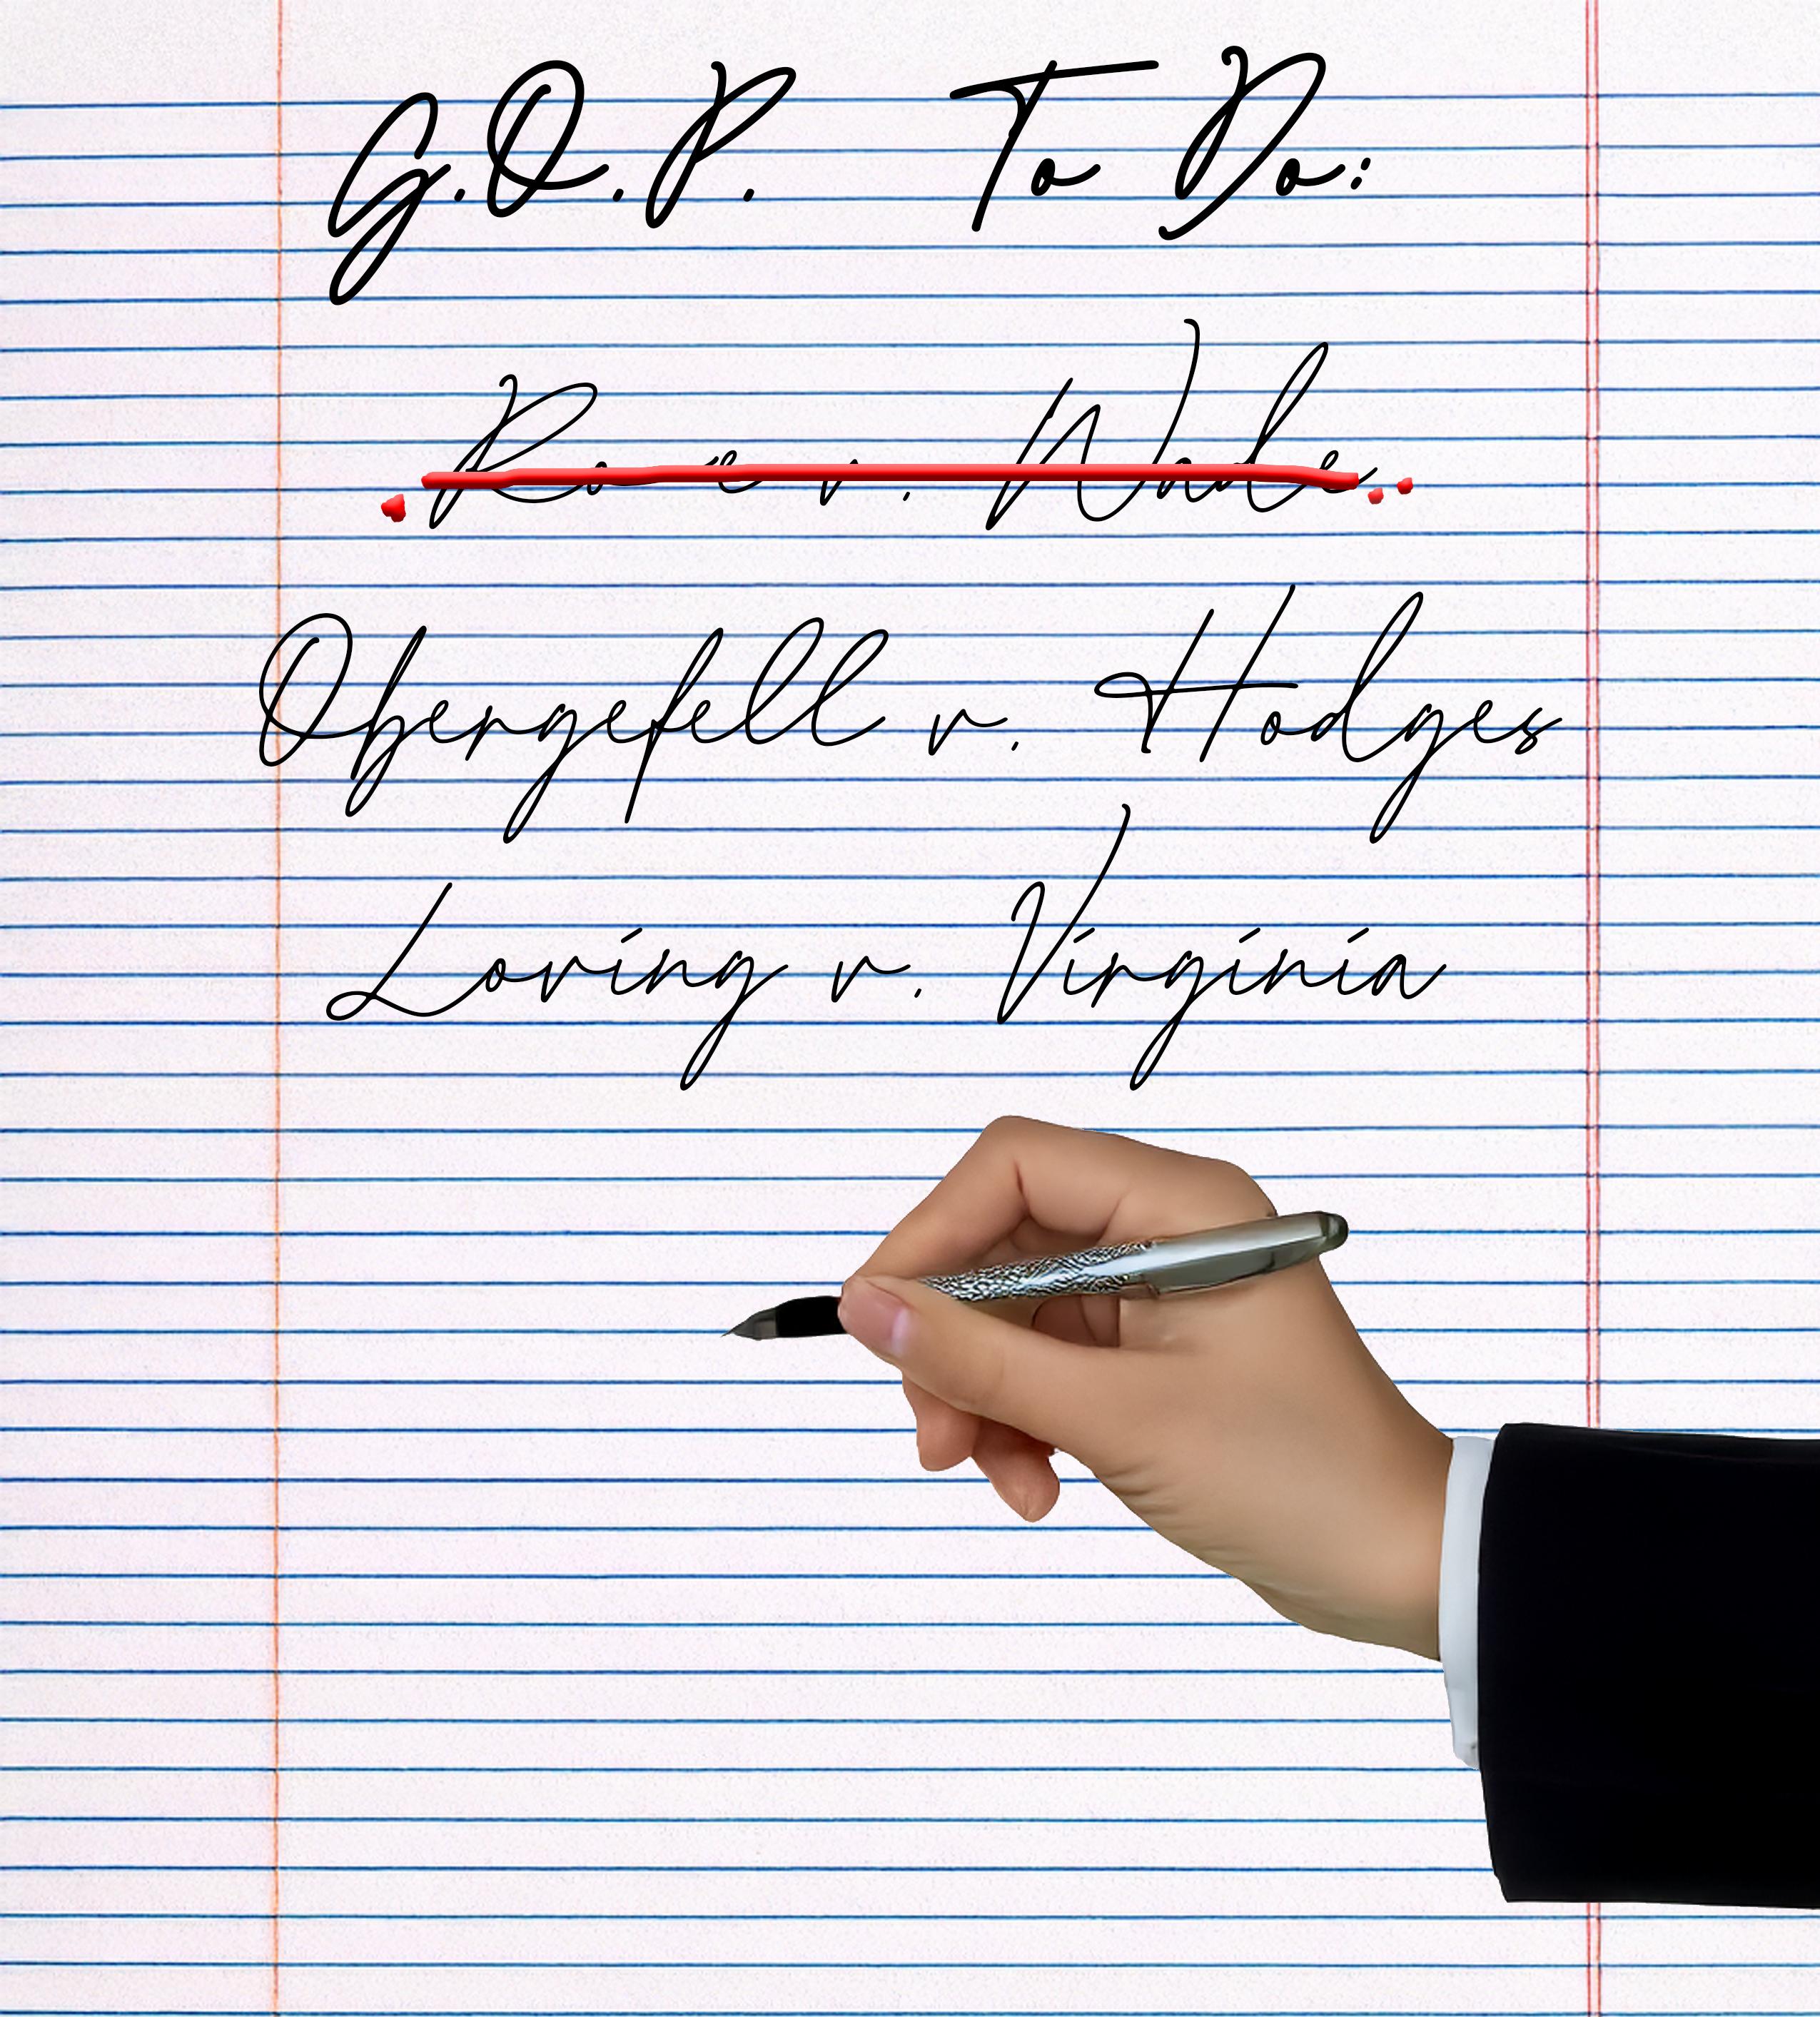 G.O.P. To Do:
Roe v. Wade
Obergefell v. Hodges
Loving v. Virginia